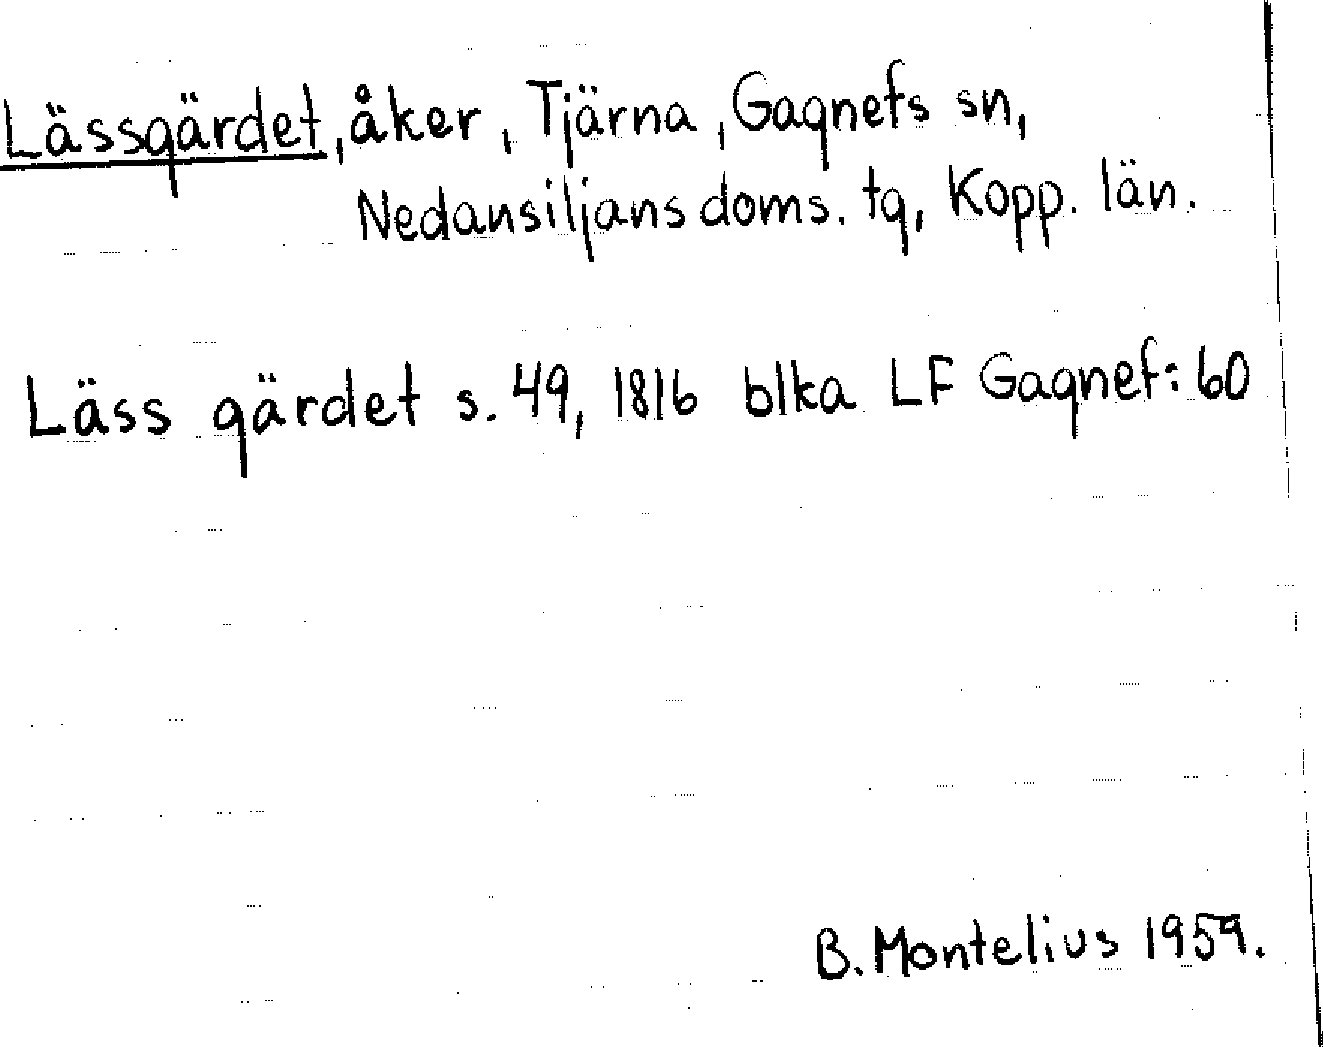 Lässgärdet, åker, Tjärna, Gagnefs sn,
Nedansiljans doms. tg, Kopp. län.
Läss gärdet s. 49, 1816 blka LF Gagnef: 60
B. Montelius 1959.